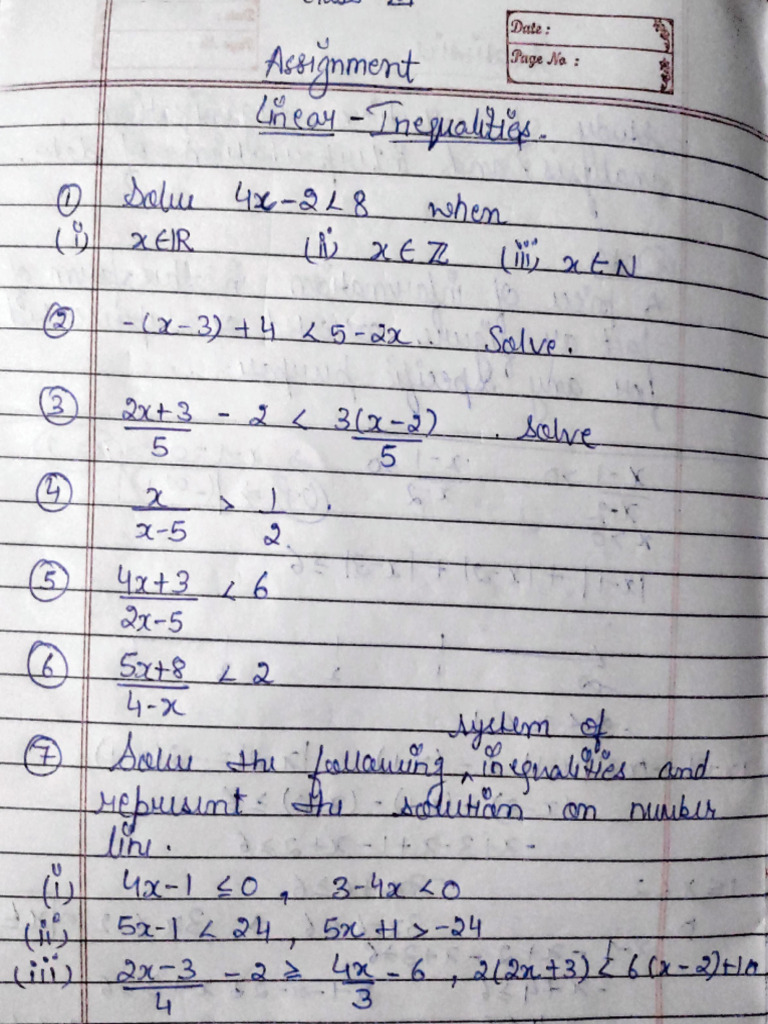 Date :
Page No :
Assignment
Linear - Inequalities.
① Solve 4x-2<8 when
(i) x∈R (ii) x∈Z (iii) x∈N
② -(x-3)+4 < 5-2x. Solve.
③ (2x+3)/5 - 2 < 3(x-2)/5 . solve
④ x/(x-5) > 1/2 .
⑤ (4x+3)/(2x-5) < 6
⑥ (5x+8)/(4-x) < 2
system of
⑦ Solve the following ‸ inequalities and
represent the solution on number
line.
(i) 4x-1 ≤0 , 3-4x<0
(ii) 5x-1 < 24 , 5x+1 > -24
(iii) (2x-3)/4 - 2 ≥ 4x/3 - 6 , 2(2x+3) < 6(x-2)+10